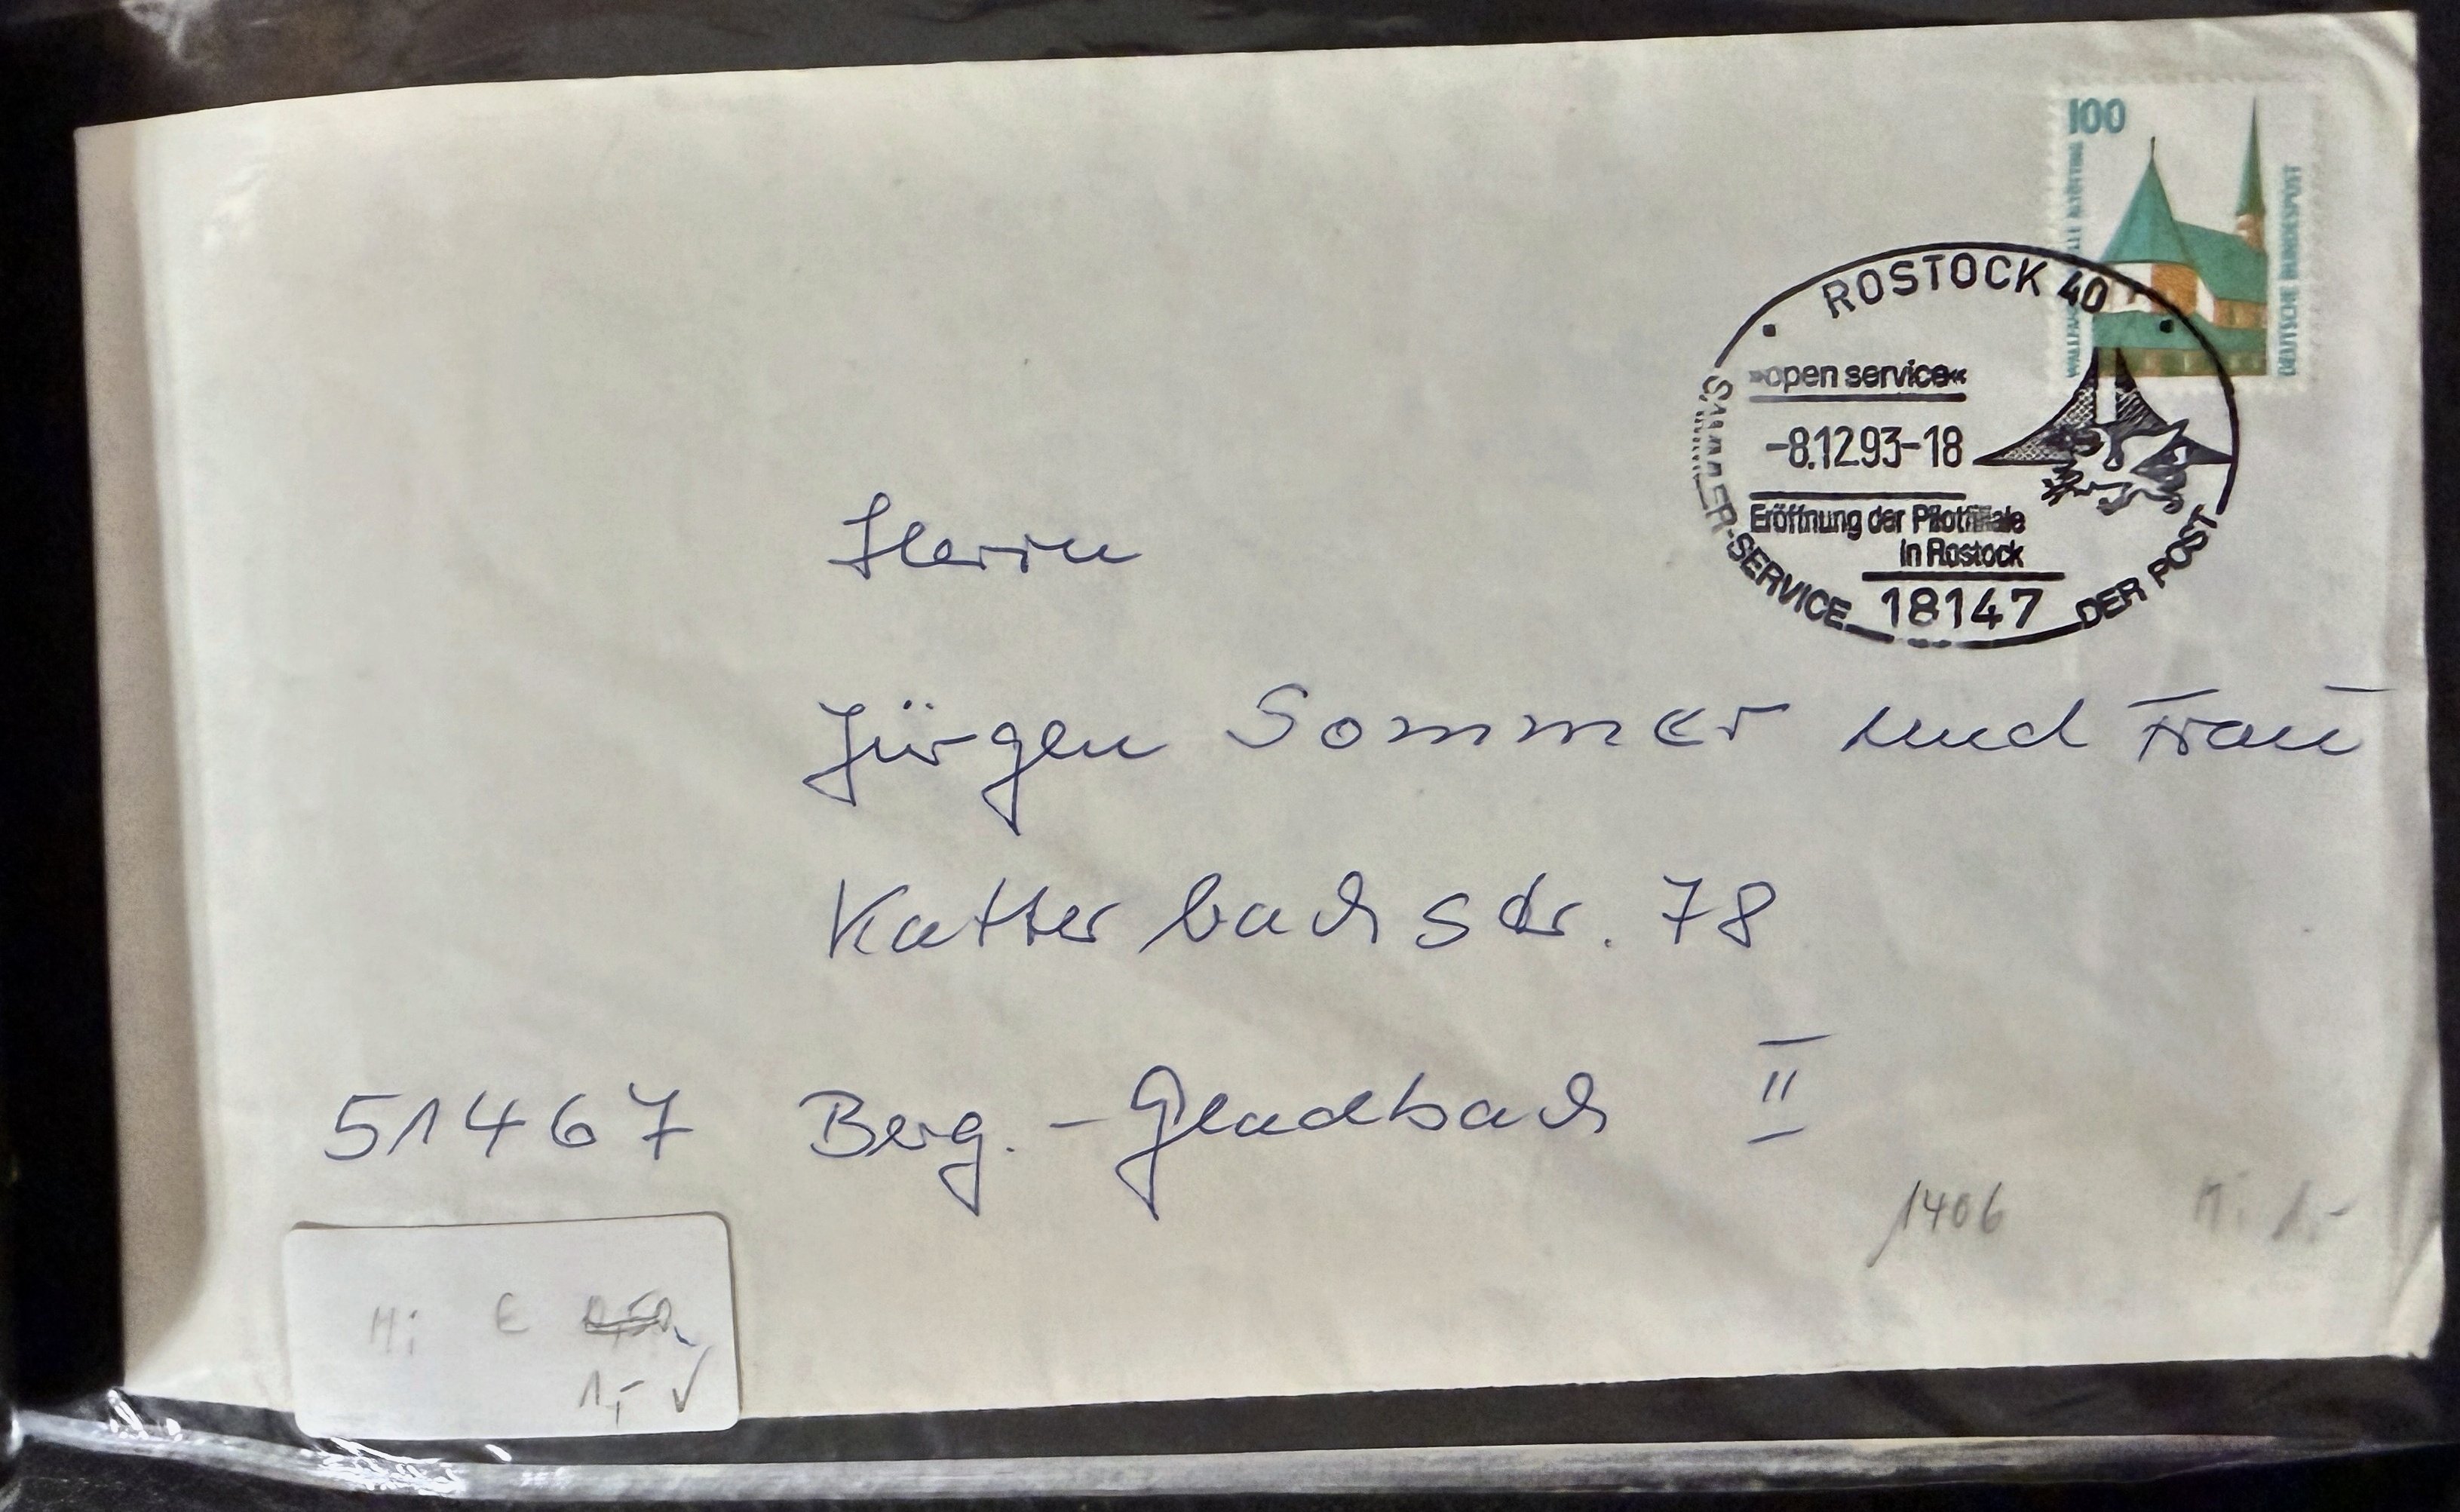 100
WALLFAHRTSKAPELLE ALTÖTTING
DEUTSCHE BUNDESPOST
ROSTOCK 40
»open service«
-8.12.93-18
Eröffnung der Pilotfiliale
in Rostock
18147
SAMMLER-SERVICE DER POST
Herrn
Jürgen Sommer und Frau
Katterbachstr. 78
51467 Berg.-Gladbach II
1406
Mi 1,-
Mi €
1,- ✓